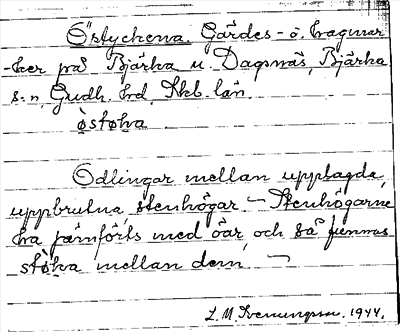 Östyckena. Gärdes- o. hagmar-
ker på Bjärka u. Dagsnäs, Bjärka
s:n, Gudh. hd, Skb. län.
östøka
Odlingar mellan upplagda,
uppbrutna stenhögar. – Stenhögarne
ha jämförts med öar, och så finnas
støka mellan dem. –
L. M. Svenungsson. 1944.